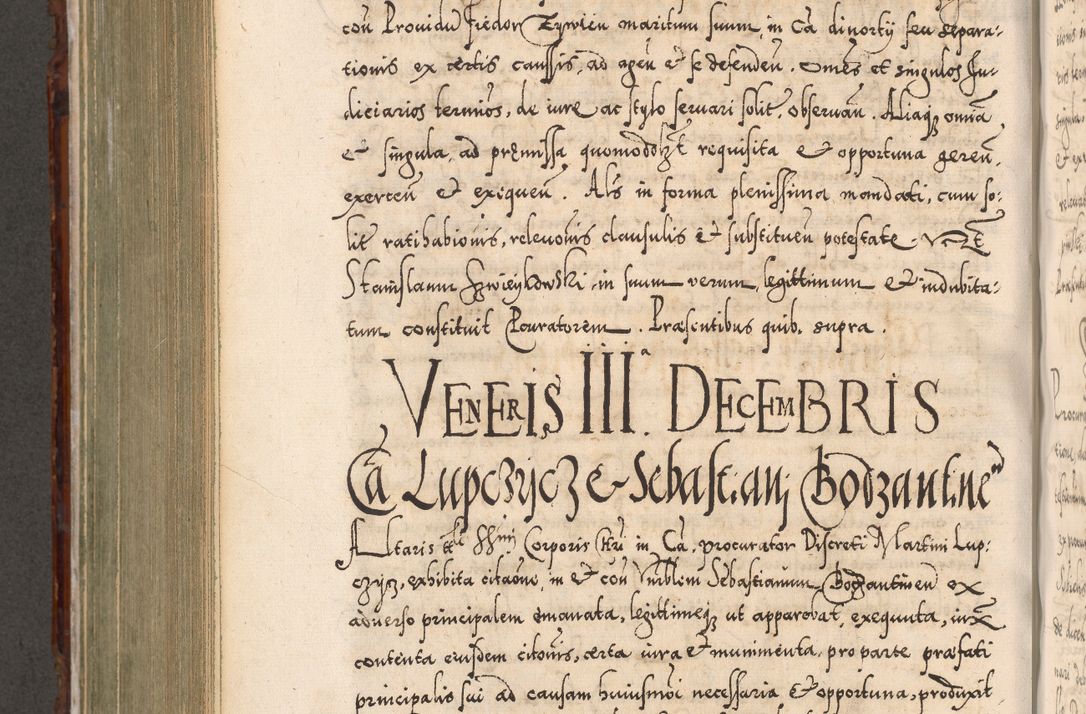 coñ Providũ Fredor Zywień maritum suum in Cã divortij seu separa:
tionis ex certis caussis, ad agen̄ et se defenden̄. Omẽs et singulos Ju:
diciarios termĩos, de iure ac stylo servari solit, observan̄. Aliaq, omnia
et singula, ad præmissa quomodolt requisita et opportuna geren̄,
exercen̄ et exequen̄. Als in forma plenissima mandati, cum so:
lit ratihabiõnis, relevõnis clausulis et substituen̄ potestate.
Stanislaum in suum verum, legittimum et indubita:
tum constituit Procuratorem. Præsentibus quib. supra.
VENERIS III.ª DECEMBRIS
Cã Lupczycz et Sebastiani Bodzantine
Altaris Corporis Chri in Cã. procurator Discreti Martini Lup:
czijcz, exhibita citaõne, in et coñ Nobilem Sebastianum Bodzantinen̄ ex
adverso principalem emanata, legittimeq, ut apparebat, exequuta, iuxᵃ
contenta eiusdem citõnis, certa iura et munimenta, pro parte præfati
principalis sui ad causam huiusmõi necessaria et opportuna, produxit